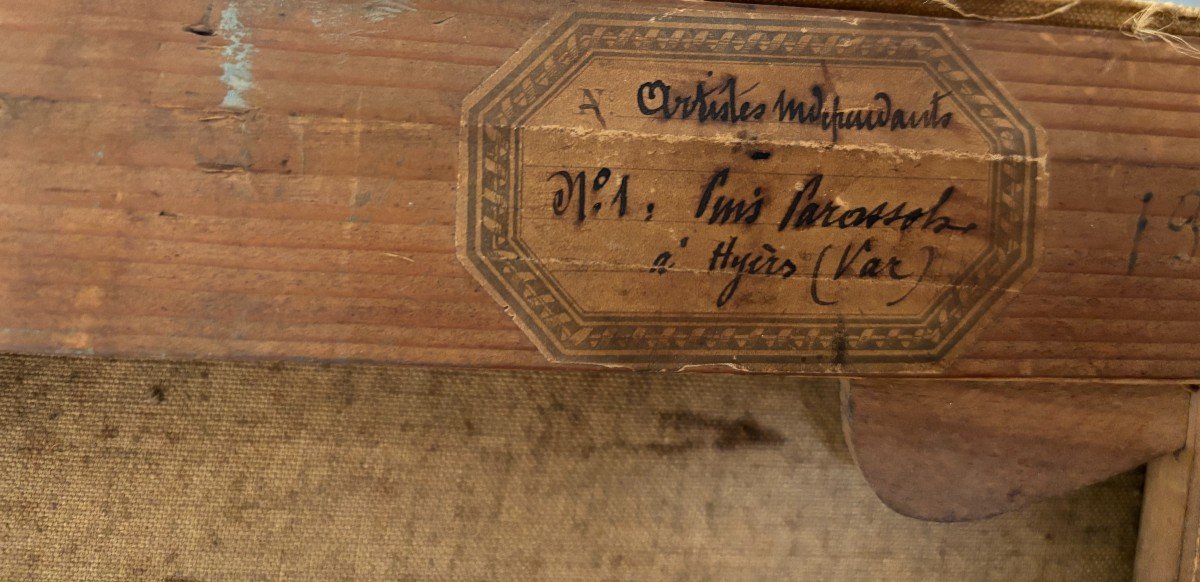 Artistes Indépendants
N°. 1. Pins Parassols
à Hyères (Var)